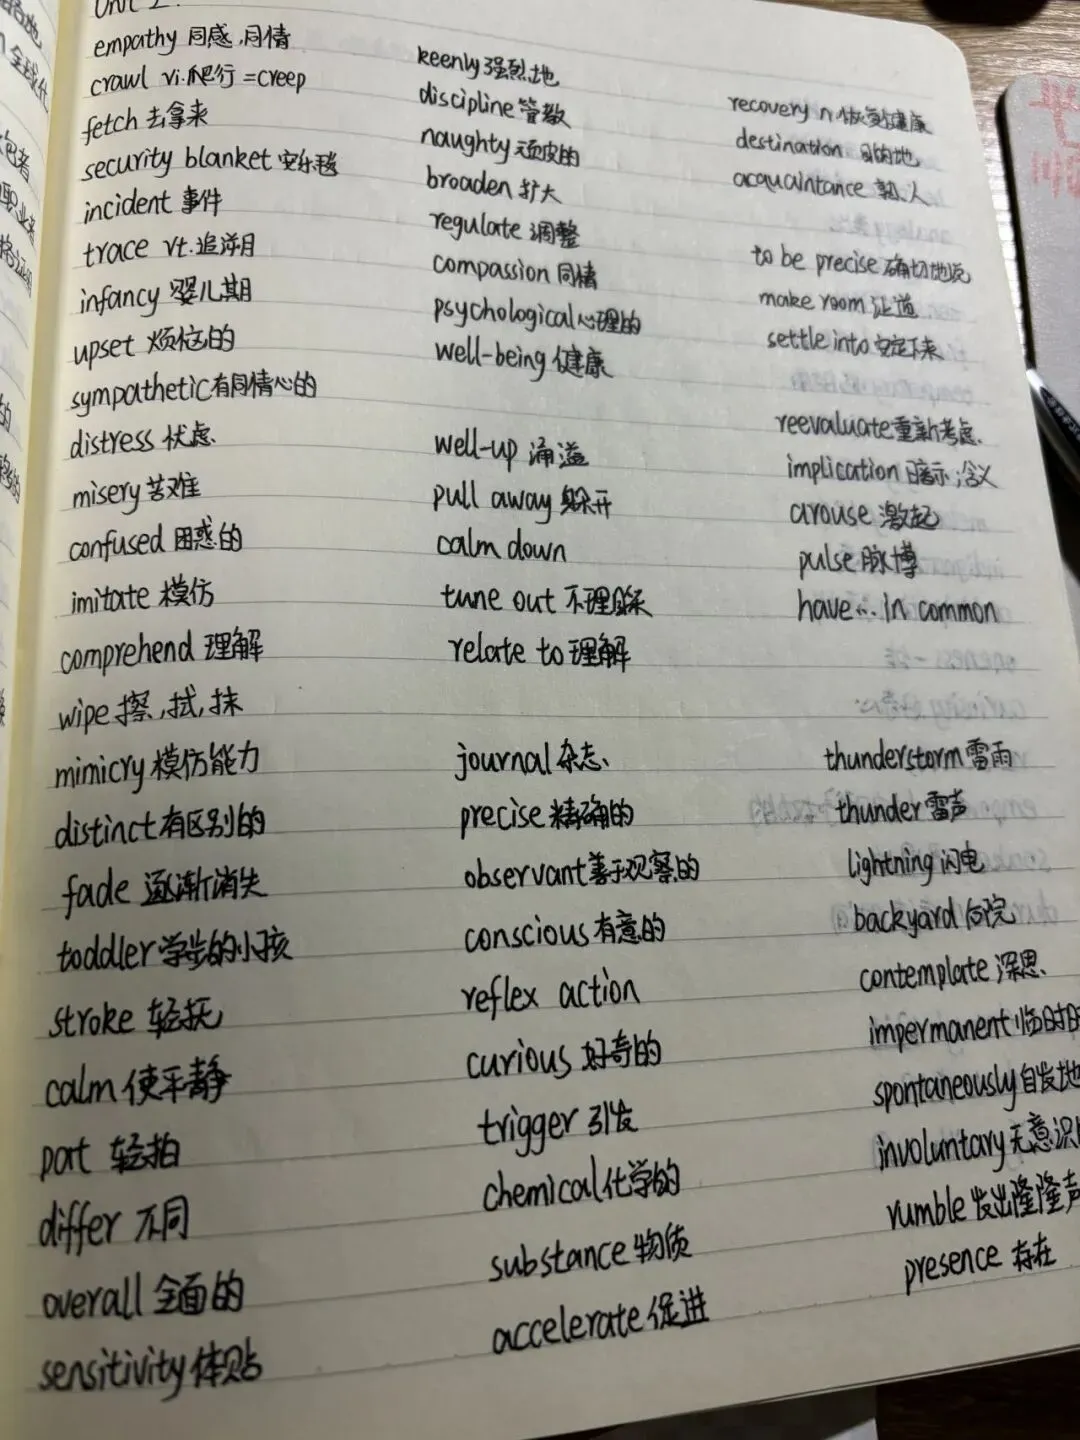 Unit 2
empathy 同感,同情
crawl vi.爬行 =creep
fetch 去拿来
security blanket 安乐毯
incident 事件
trace vt.追溯
infancy 婴儿期
upset 烦恼的
sympathetic有同情心的
distress 忧虑
misery苦难
confused 困惑的
imitate 模仿
comprehend 理解
wipe 擦,拭,抹
mimicry 模仿能力
distinct有区别的
fade 逐渐消失
toddler学步的小孩
stroke 轻抚
calm 使平静
pat 轻拍
differ 不同
overall 全面的
sensitivity体贴
keenly强烈地
discipline管教
naughty顽皮的
broaden 扩大
regulate 调整
compassion 同情
psychological心理的
well-being 健康
well-up 涌溢
pull away 躲开
calm down
tune out 不理睬
relate to理解
journal杂志
precise 精确的
observant善于观察的
conscious有意的
reflex action
curious 好奇的
trigger 引发
chemical化学的
substance物质
accelerate促进
recovery n.恢复健康
destination 目的地
acquaintance 熟人
to be precise确切地说
make room 让道
settle into安定下来
reevaluate重新考虑
implication 暗示;含义
arouse 激起
pulse脉搏
have... in common
thunderstorm雷雨
thunder 雷声
lightning闪电
backyard后院
contemplate深思
impermanent临时
spontaneously自发地
involuntary无意识
rumble发出隆隆声
presence 存在